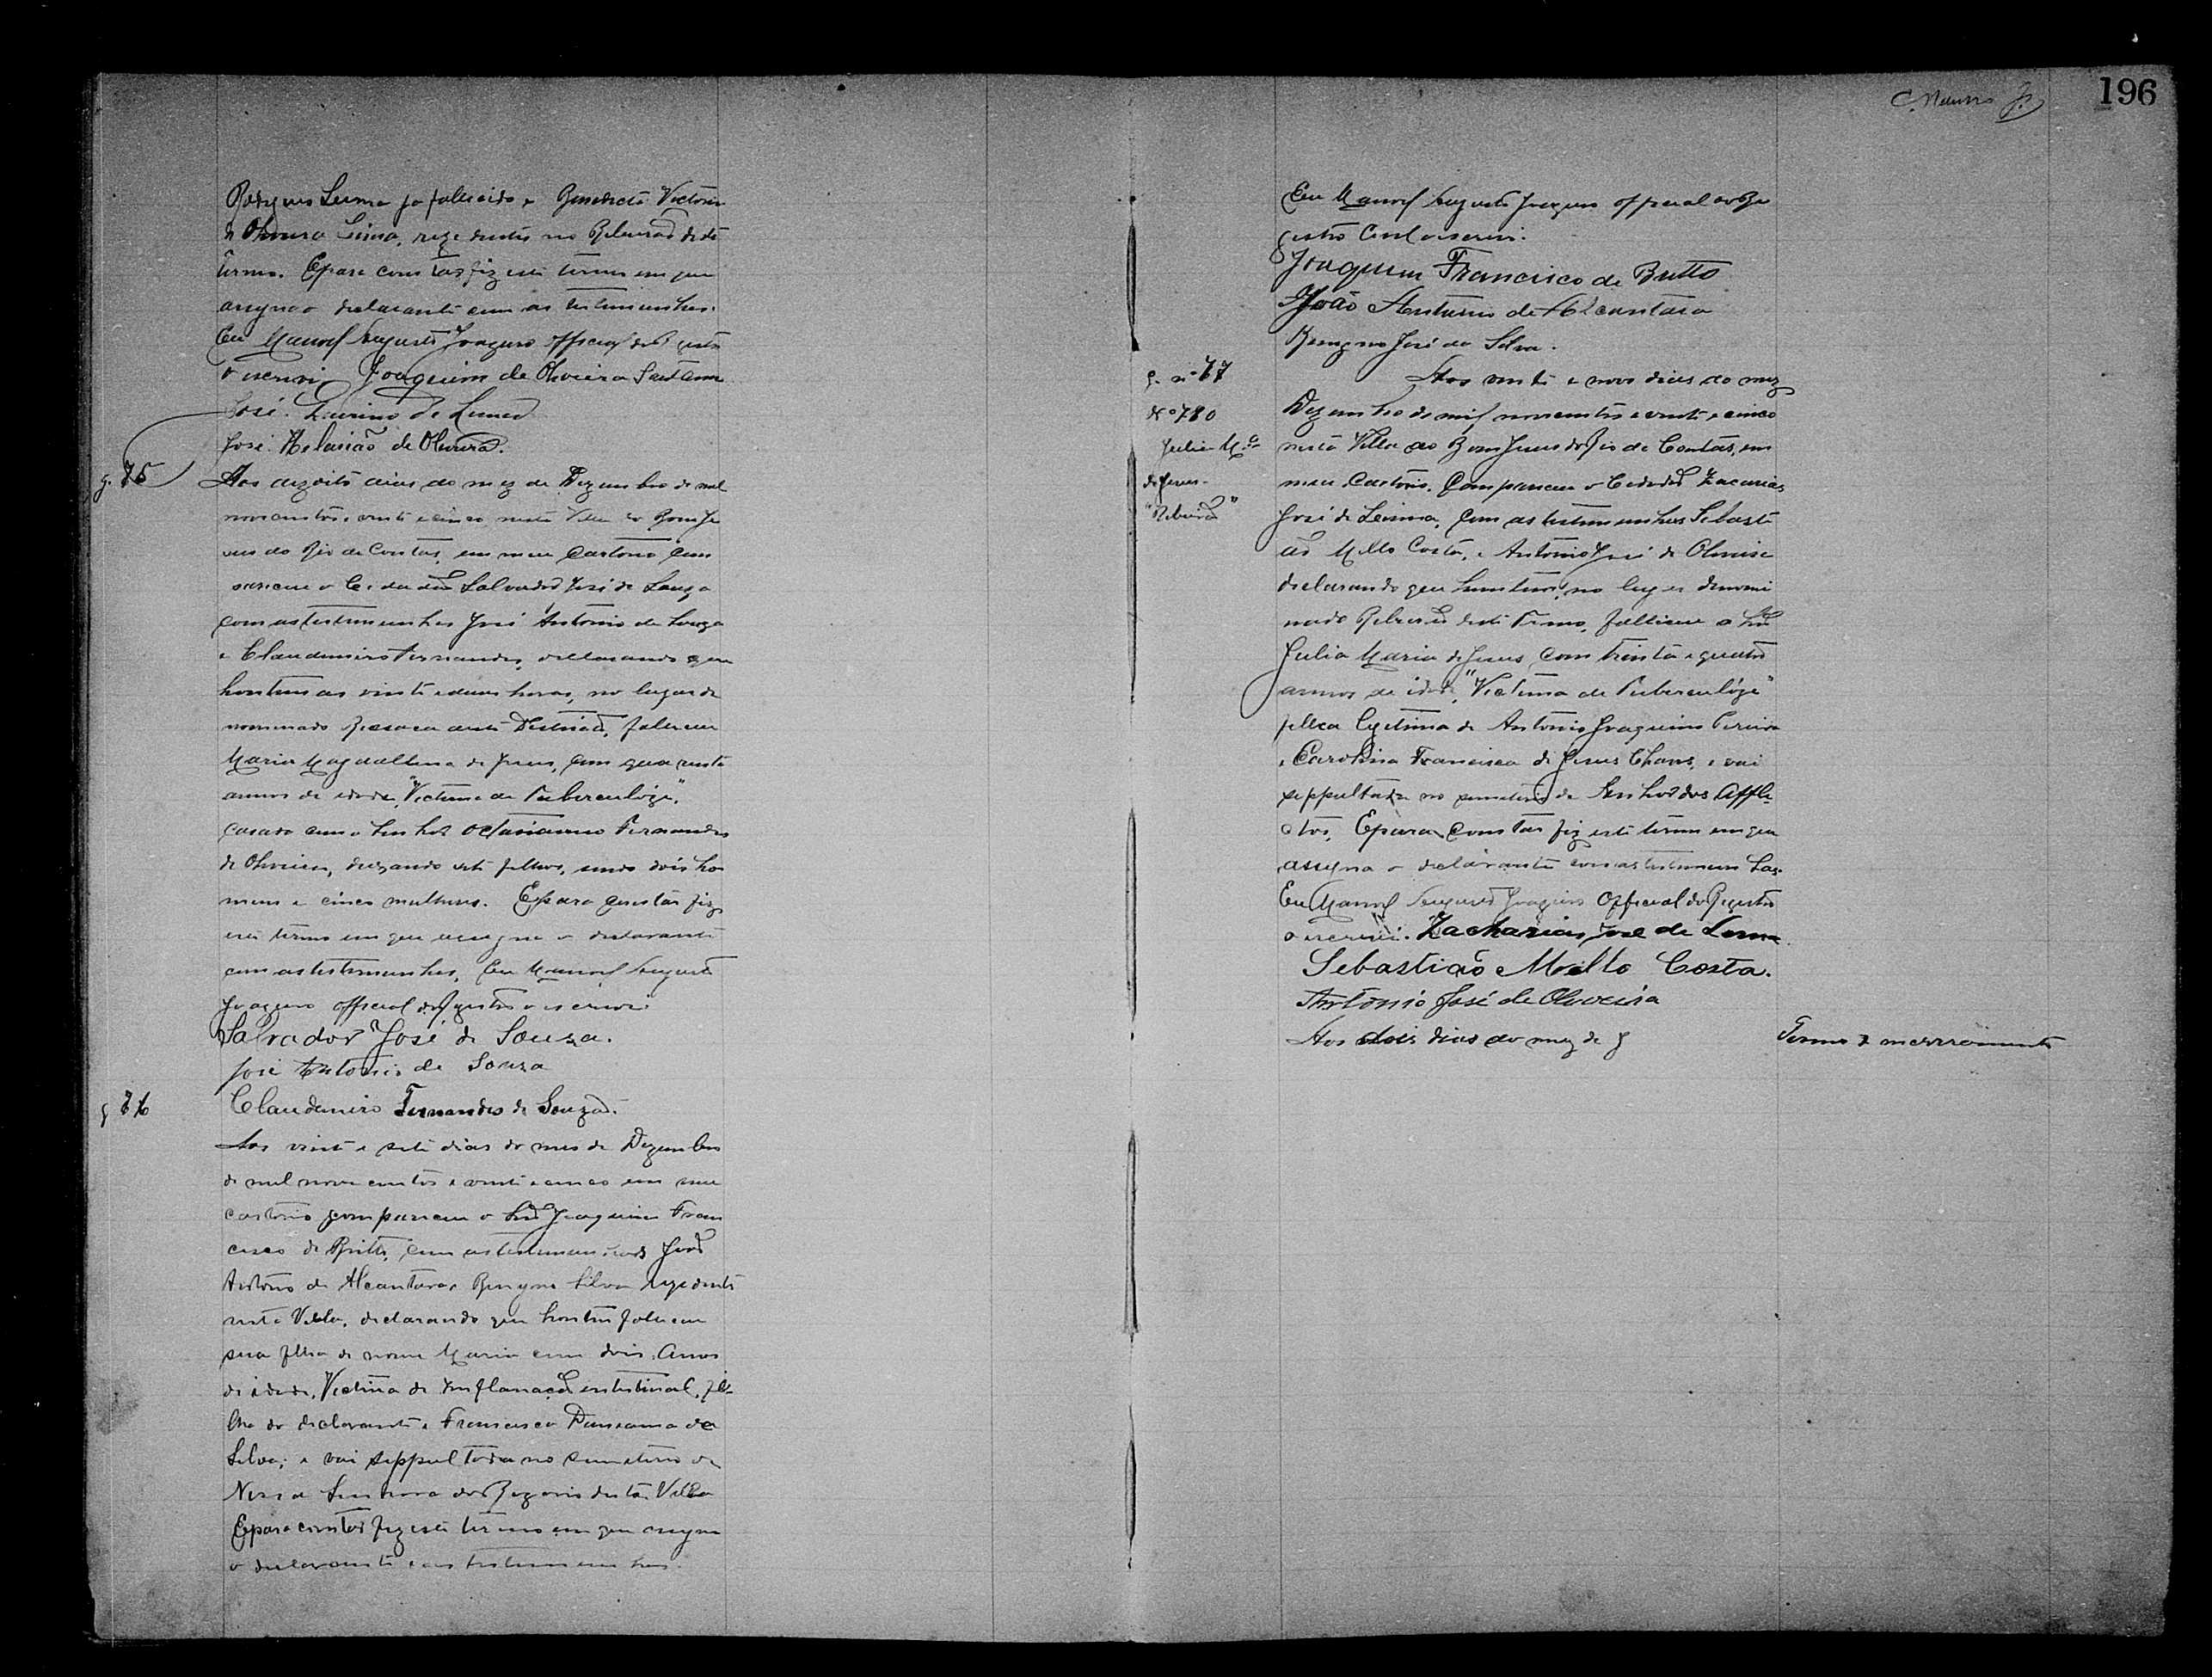 196
Rodrigues Lima ja fallecido e Benedicta Victoria
de Oliveira Lima, rezidentes no Ribeirão deste
termo. E para constar fiz este termo em que
assigna o declarante com as testimunhas.
Eu Manoel Augusto Joazeiro official do Registro
o escrevi. Joaquim de Oliveira Santana
José Laurino de Lima
José Hilarião de Oliveira.
g. 75
Aos dezoito dias do mez de Dezembro de mil
novecentos e vinte e cinco nesta Villa do Bom Je
sus do Rio de Contas, em meu Cartorio com
pareceu o Cidadão Salvador José de Souza
com as testimunhas José Antonio de Souza
e Claudemiro Fernandes, declarando que
hontem as vinte e duas horas, no lugar de
nominado Ressaca deste Districto, falleceu
Maria Magdallena de Jesus, com quarenta
annos de idade, "Victima de Tuberculóze",
casada com o Senhor Octaviano Fernandes
de Oliveira, deixando sete filhos, sendo dois ho
mens e cinco mulheres. E para constar fiz
este termo em que assigna o declarante
com as testimunhas, Eu Manoel Augusto
Joazeiro official do Registro o escrevi
Salvador José de Souza.
José Antonio de Souza
g 76
Claudemiro Fernandes de Souza.
Aos vinte e sete dias do mes de Dezembro
de mil nove centos e vinte e cinco em meu
cartorio compareceu o Snr Joaquim Fran
cisco de Britto, com as testimunhas João
Antonio de Alcantara e Benigno Silva rezidente
nesta Villa, declarando que hontem falleceu
sua filha de nome Maria com dois annos
de idade, Victima de Inflamação intestinal, fi-
lha do declarante e Francisca da
Silva; e vai seppultada no semeterio de
Nossa Senhora do Rozario desta Villa
E para constar fiz este termo em que assigna
o declarante e as testimunhas.
Eu Manoel Augusto Joazeiro official do Re
gistro Civil o escrevi.
Joaquim Francisco de Britto
João Antonio de Alcantara
Benigno José da Silva.
g. nº 77
Nº 780
Julia Mª
de Jesus-
"Ribeirão"
Aos vinte e nove dias do mez
Dezembro de mil novecentos e vinte e cinco
nesta Villa do Bom Jesus do Rio de Contas, em
meu Cartorio. Compareceu o Cidadão Zacarias
José de Lima, com as testimunhas Sebasti
ão Mello Costa, e Antonio José de Oliveira
declarando que hontem, no lugar denomi
nado Ribeirão deste Termo, falleceu a Snra
Julia Maria de Jesus, com trinta e quatro
annos de idade, "Victima de Tuberculóze"
filha legitima de Antonio Joaquim Pereira
e Carolina Francisca de Jesus Chaves, e vai
seppultada no semeterio do Senhor dos Affli-
ctos, E para constar fiz este termo em que
assigna o declarante com as testimunhas.
Eu Manoel Augusto Joazeiro Official do Registro
o escrevi. Zacharias José de Lima
Sebastião Mello Costa.
Antonio José de Oliveira
Aos dois dias do mez de J
Termo de encerramento